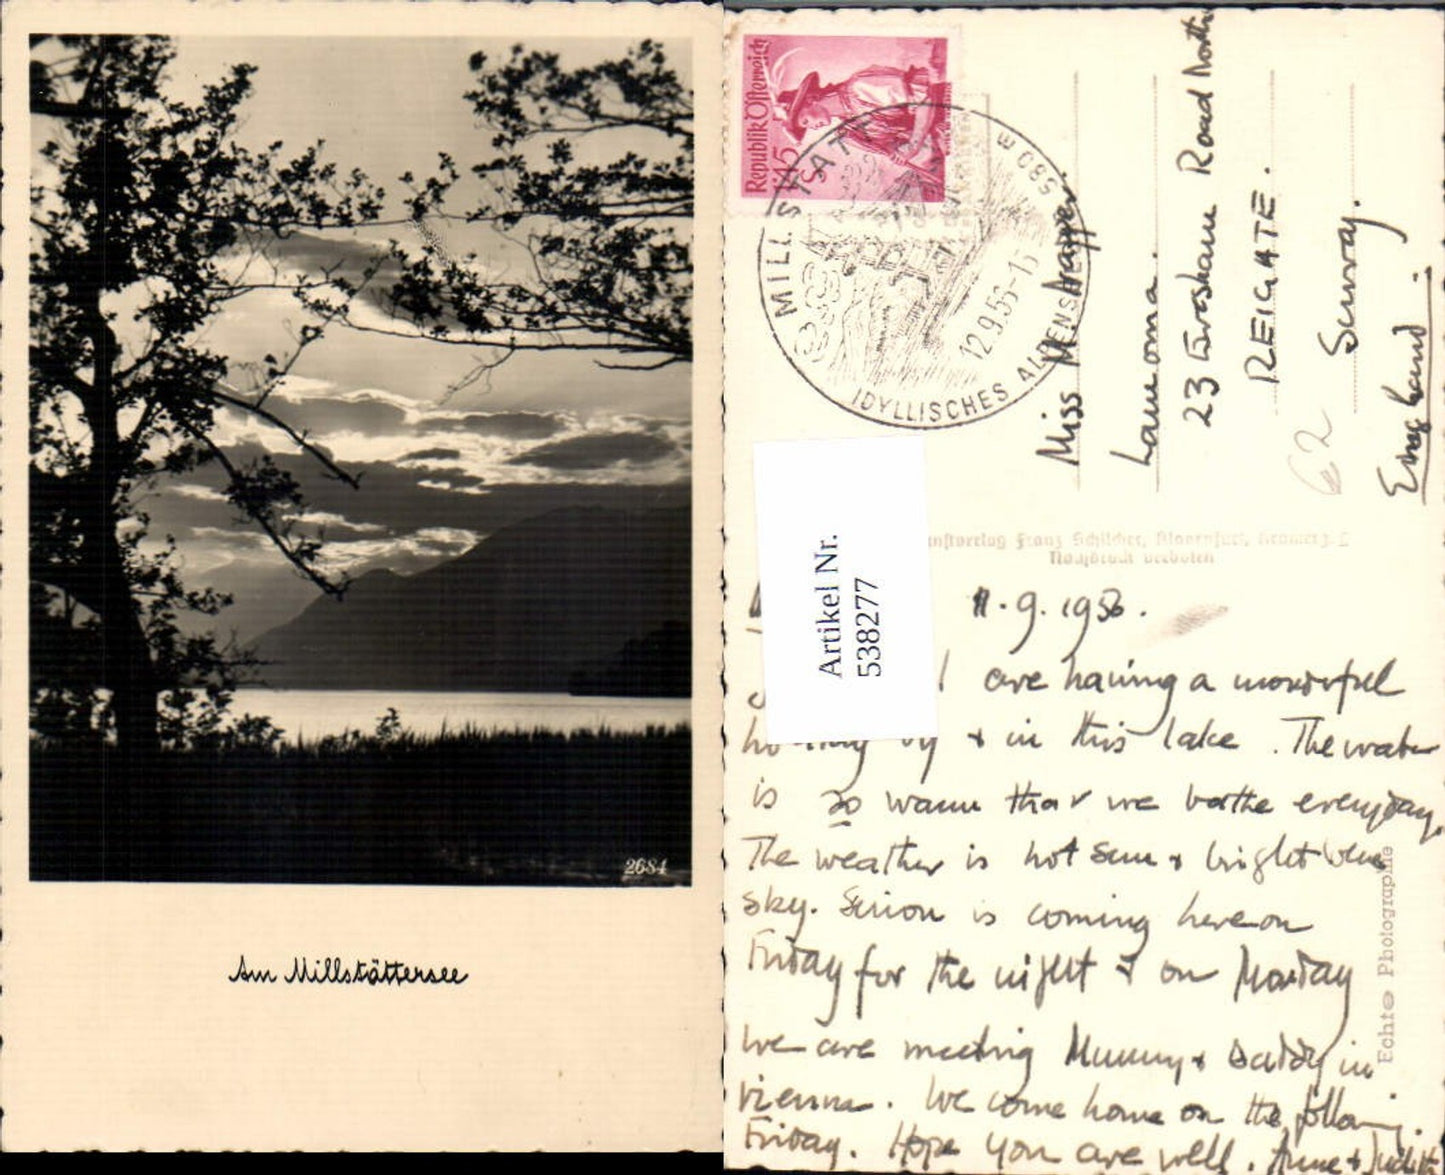 2684
Am Millstättersee
Republik Österreich
45
MILLSTATT
12.9.56-15
IDYLLISCHES
Miss M
23 Road North
REIGATE.
Surrey.
England.
62
Franz Schilcher, Klagenfurt,
Nachdruck verboten
Artikel Nr.
538277
Echte Photographie
11.9.1956.
I are having a wonderful
by & in this lake. The water
is so warm that we bathe everyday.
The weather is hot sun & bright blue
sky. Simon is coming here on
Friday for the night & on Monday
we are meeting Mummy & Daddy in
Vienna. We come home on the following
Friday. Hope you are well. Anne & Judith